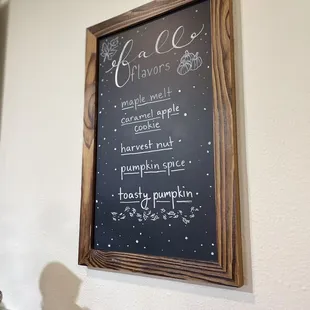 fall
flavors
• maple melt
• caramel apple
cookie
• harvest nut
• pumpkin spice
• toasty pumpkin